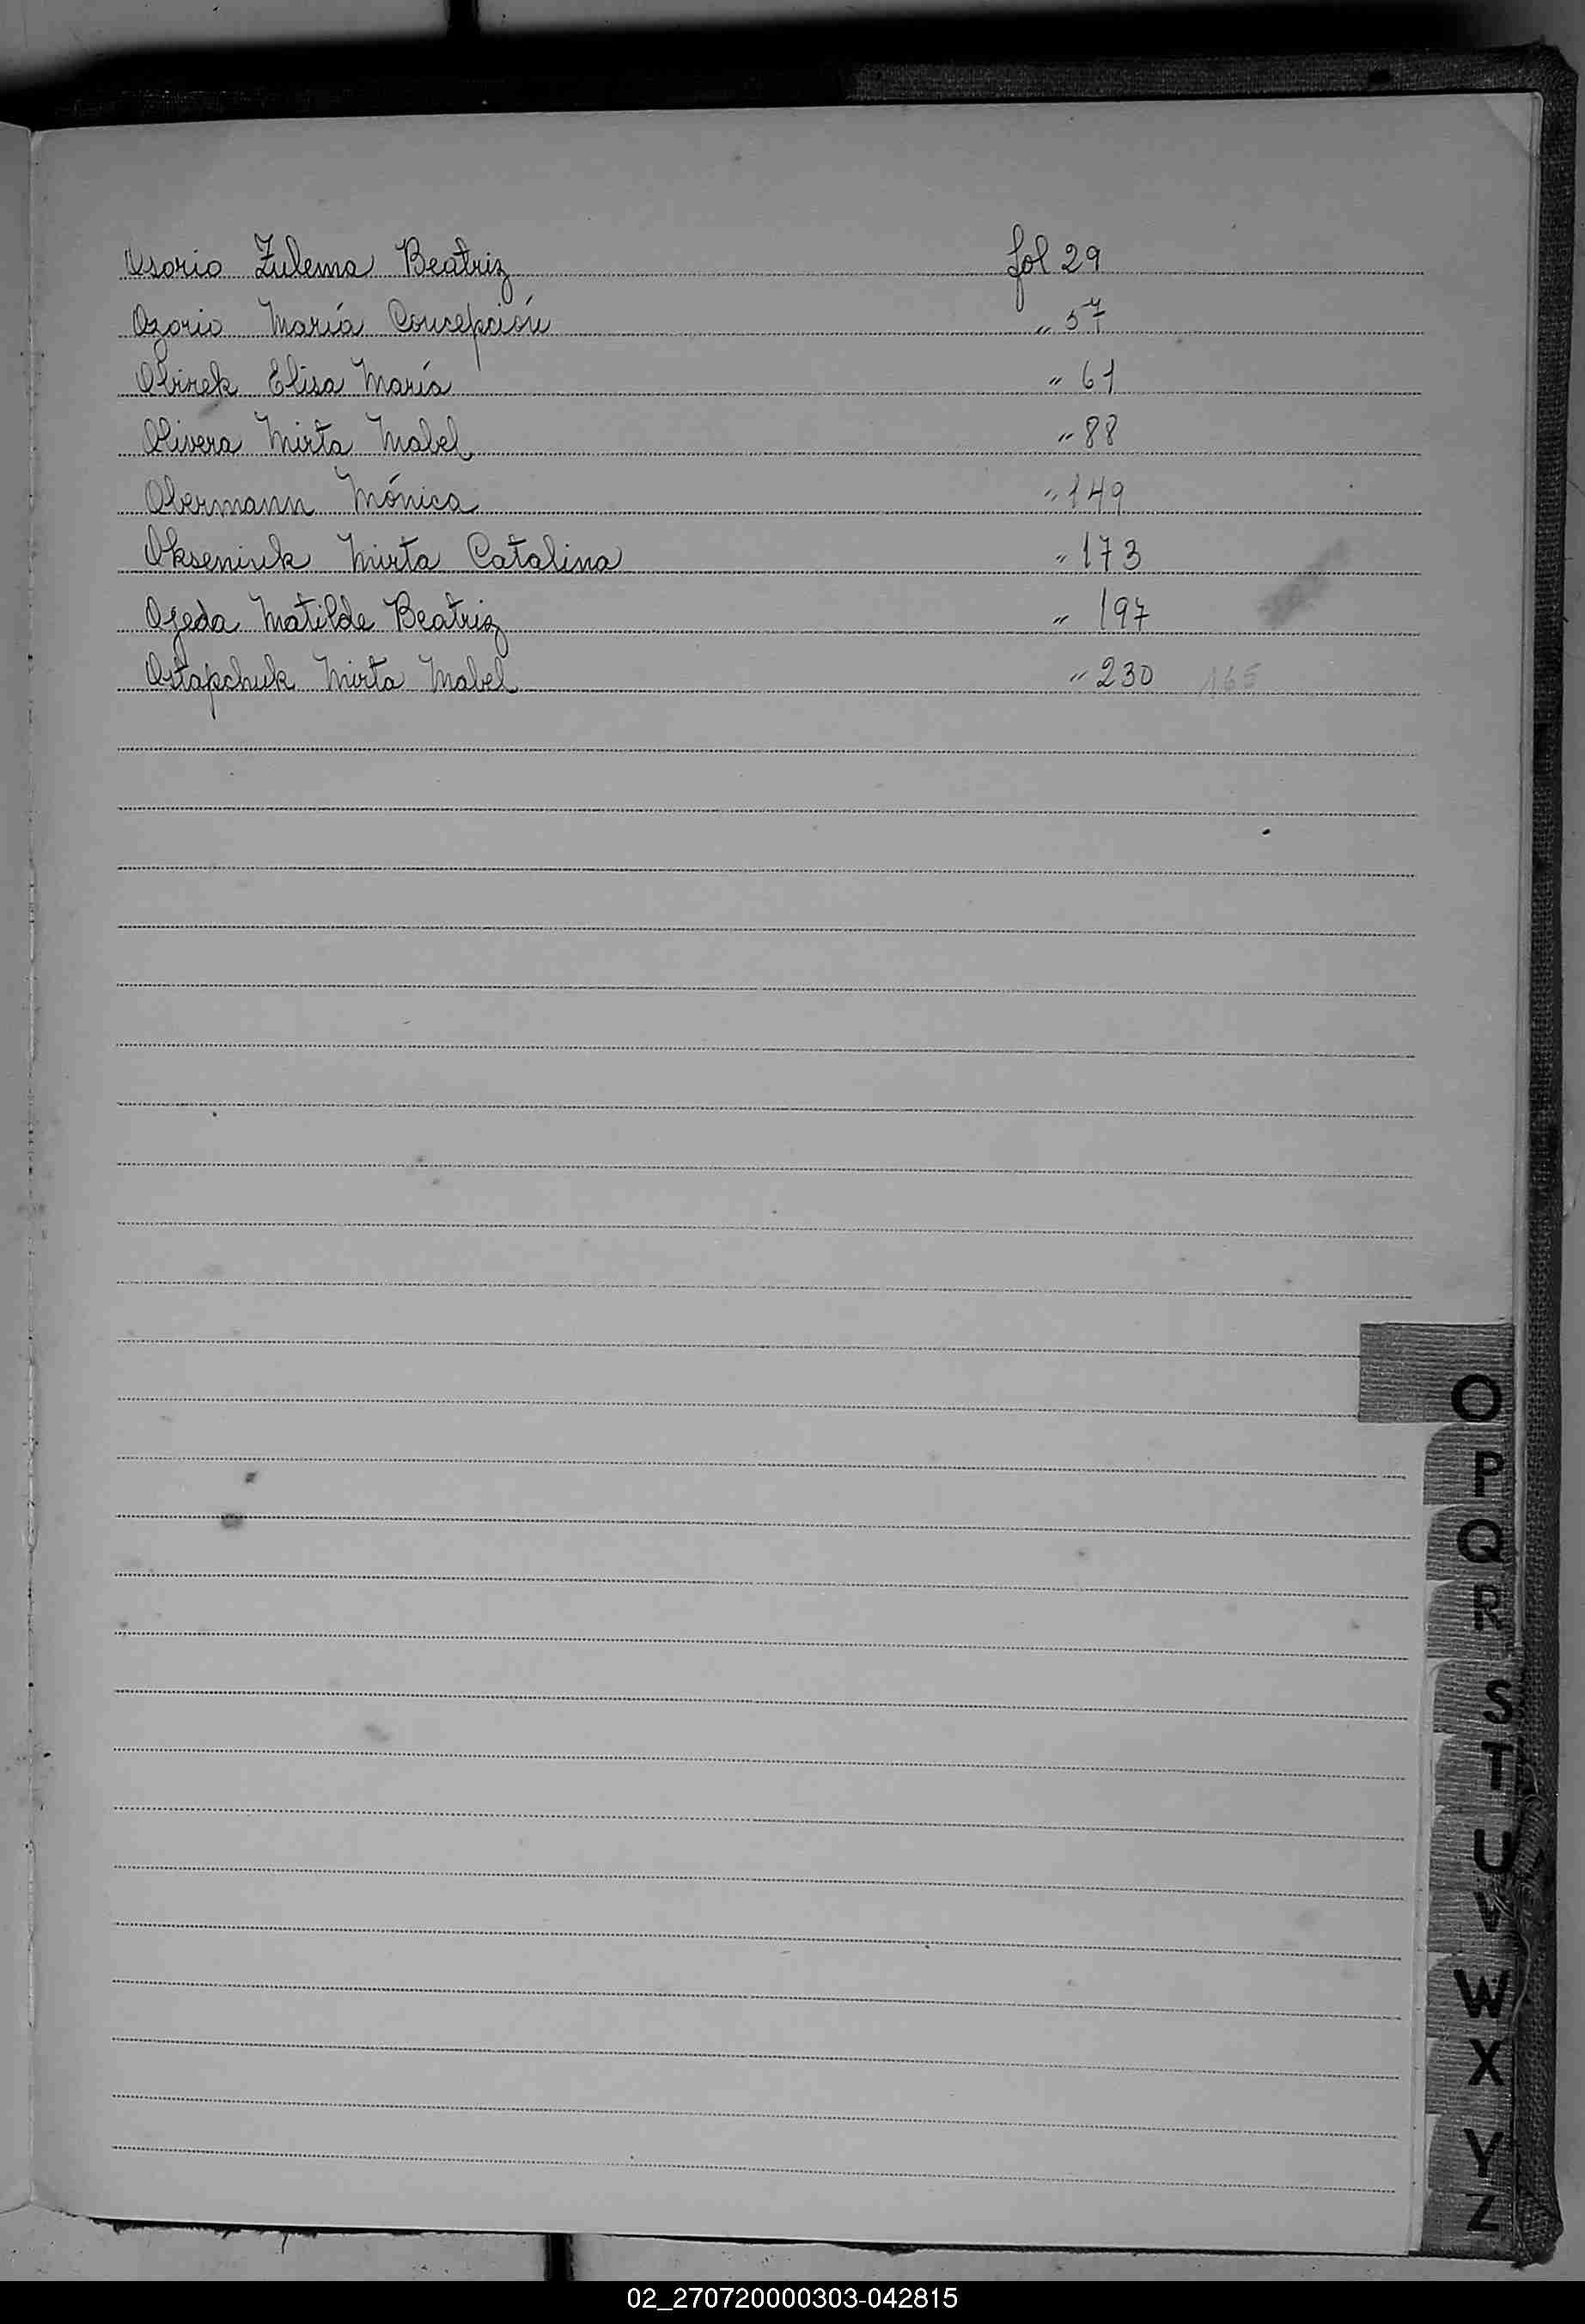 Osorio Zulema Beatriz fol 29
Ozorio María Concepción " 57
Obirek Elisa María " 61
Olivera Mirta Mabel " 88
Obermann Mónica " 149
Okseniuk Mirta Catalina " 173
Ojeda Matilde Beatriz " 197
Ostapchuk Mirta Mabel " 230 165
O
P
Q
R
S
T
U
V
W
X
Y
Z
02_270720000303-042815